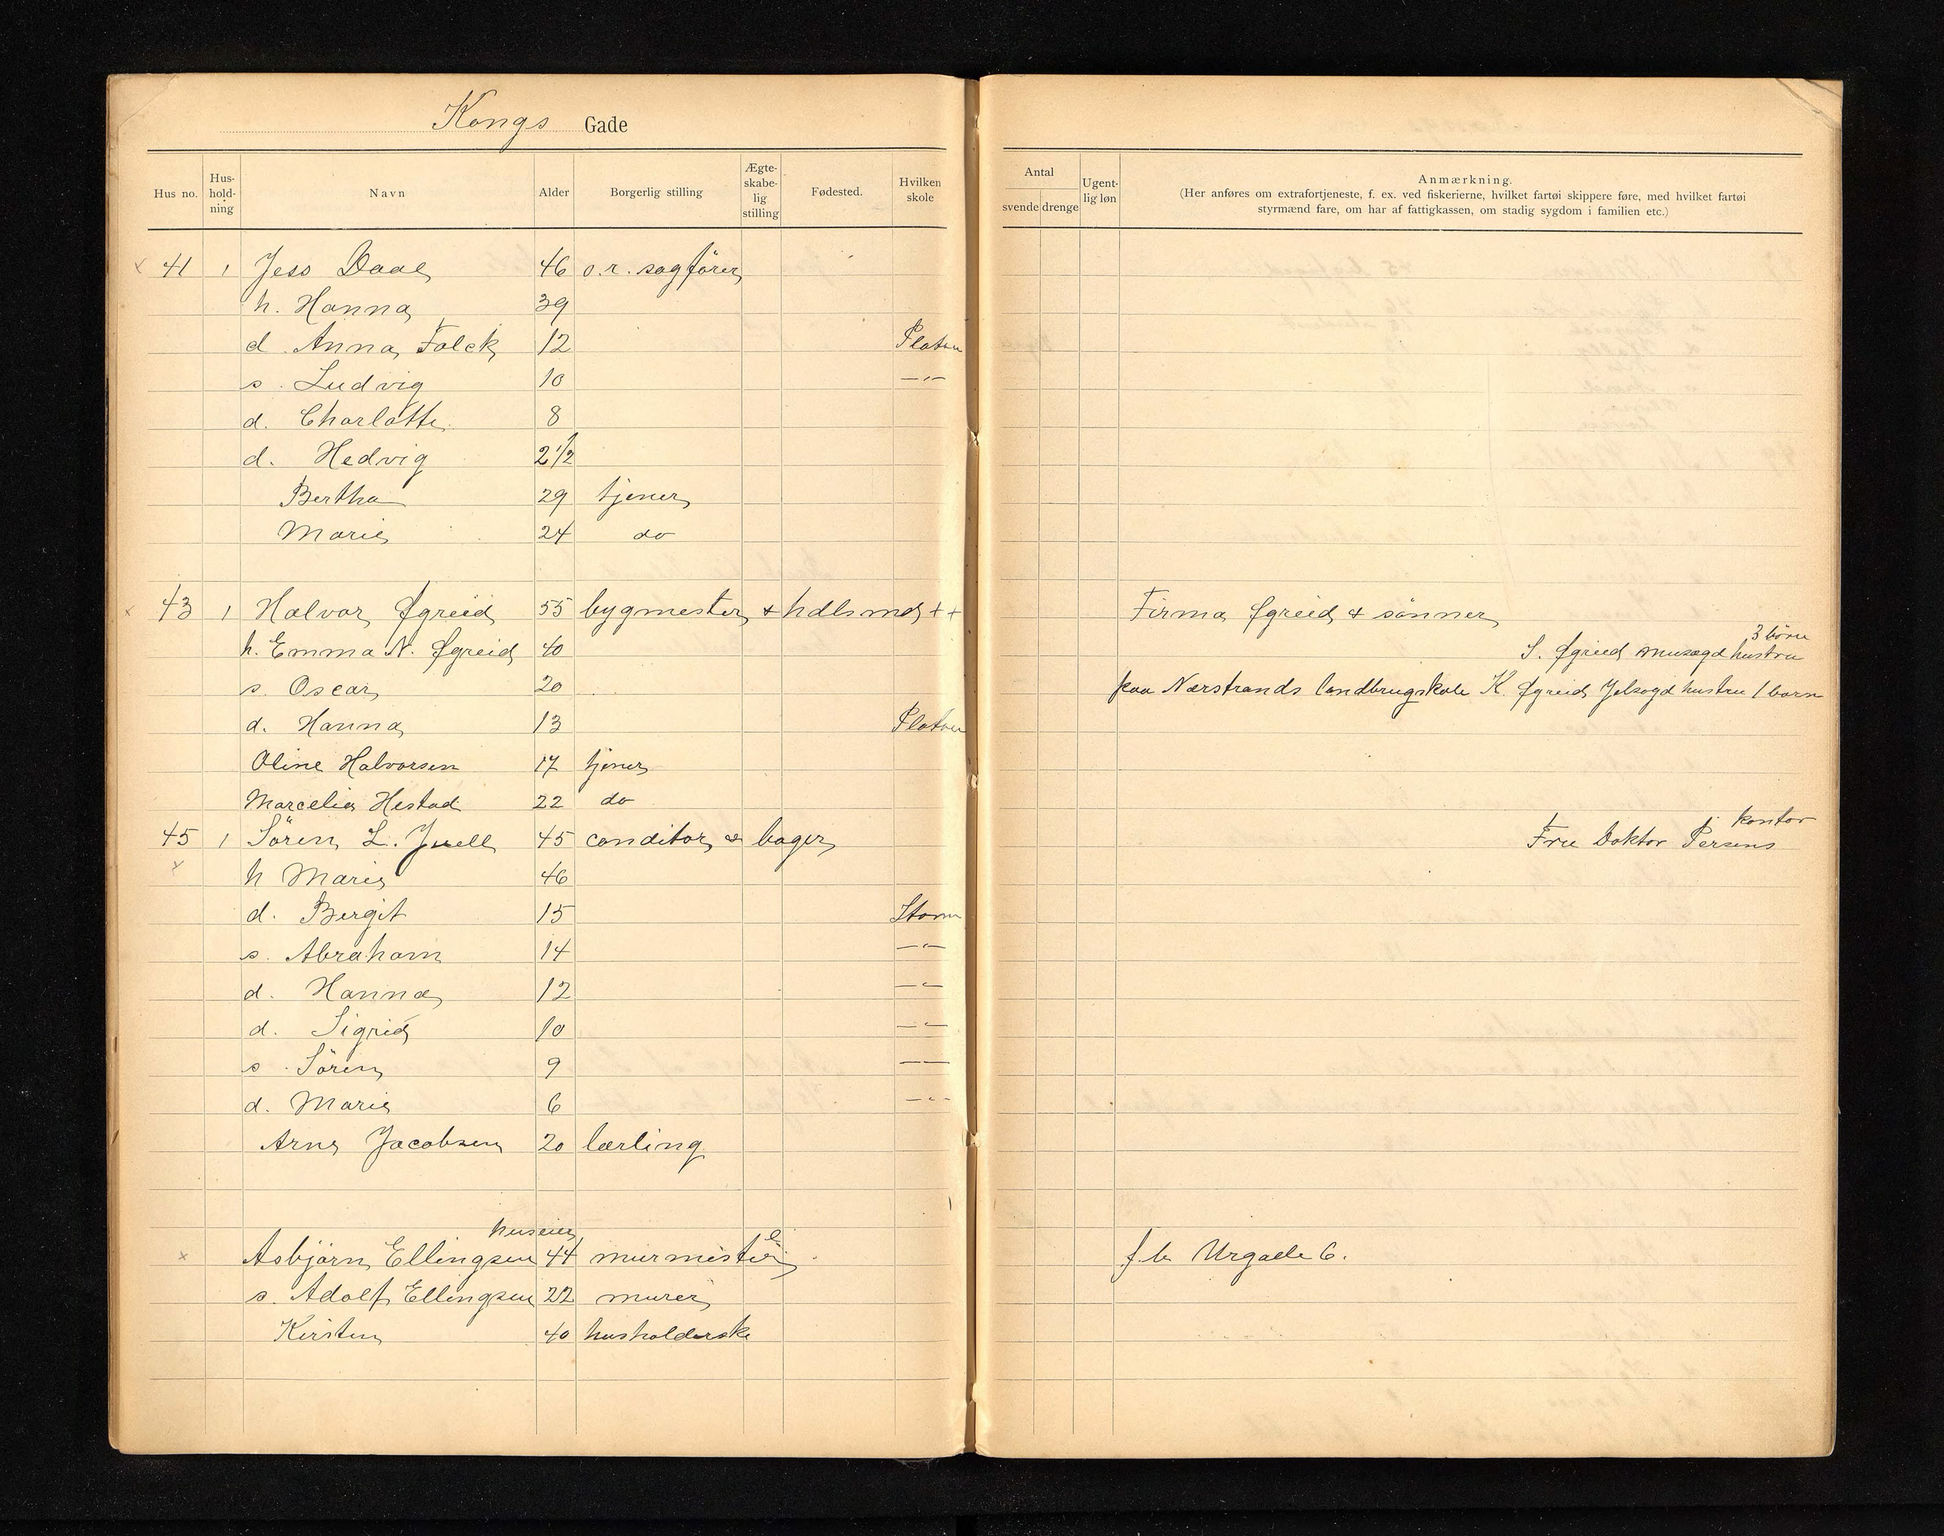 Kongs Gade
Hus no. Hus-hold-ning Navn Alder Borgerlig stilling Ægte-skabe-lig stilling Fødested. Hvilken skole
Antal svende drenge Ugent-lig løn Anmærkning.
(Her anføres om extrafortjeneste, f. ex. ved fiskerierne, hvilket fartøi skippere føre, med hvilket fartøi
styrmænd fare, om har af fattigkassen, om stadig sygdom i familien etc.)
x 41 1 Jess Daae 46 o.r. sagförer
h. Hanna 39
d. Anna Falck 12 Platou
s. Ludvig 10 —"—
d. Charlotte 8
d. Hedvig 2 1/2
Bertha 29 tjener
Marie 24 do
x 43 1 Halvor Øgreid 55 bygmester + hdlsmd ++ Firma Øgreid + sönner
3 börn
h. Emma N. Øgreid 40 S. Øgreid Musægd hustru
s. Oscar 20 paa Nærstrands landbrugskole K. Øgreid Jelsagd hustru 1 barn
d. Hanna 13 Platou
Oline Halvorsen 17 tjener
Marcelia Hestad 22 do
kontor
45 1 Sören L. Juell 45 conditor & bager Fru Doktor Persens
x h Marie 46
d. Bergit 15 Storm
s. Abraham 14 —"—
d. Hanna 12 —"—
d. Sigrid 10 —"—
s. Sören 9 —"—
d. Marie 6 —"—
Arne Jacobsen 20 lærling
huseier
x Asbjörn Ellingsen 44 murmester f.b. Urgade 6.
s. Adolf Ellingsen 22 murer
Kirsten 40 husholderske